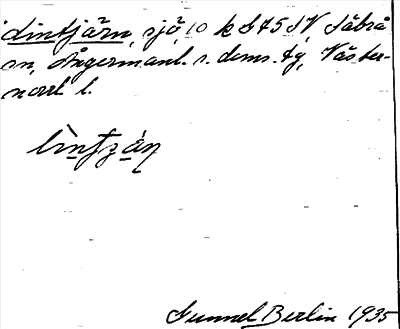 Lintjärn, sjö, 10 k S 45 SV, Säbrå
sn, Ångermanl. s. doms. tg, Väster-
norrl l.
lìntʒàn
Gunnel Berlin 1935